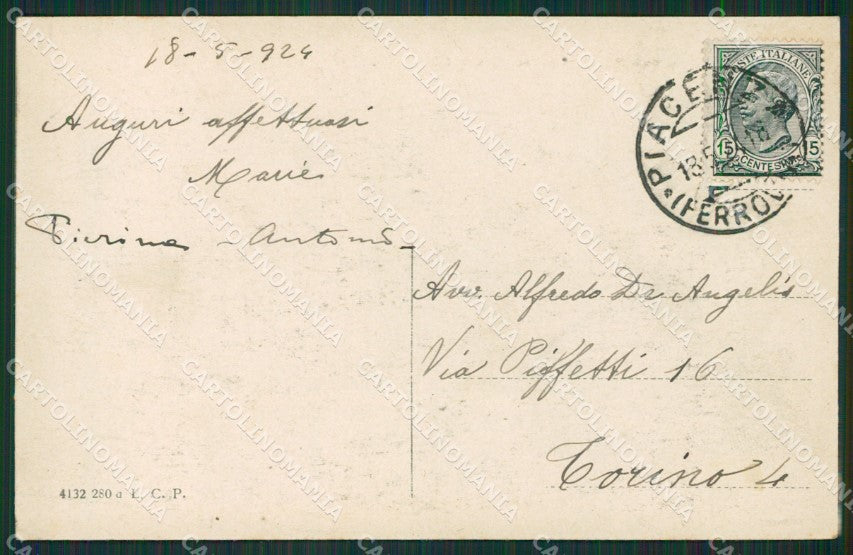 18-5-924
Auguri affettuosi
Marie
Pierina - Antonio -
POSTE ITALIANE
15 15
CENTESIMI
PIACENZA
(FERROVIA
Avv. Alfredo De Angelis
Via Piffetti 16
Torino 4
4132 280 a L. C. P.
CARTOLINOMANIA